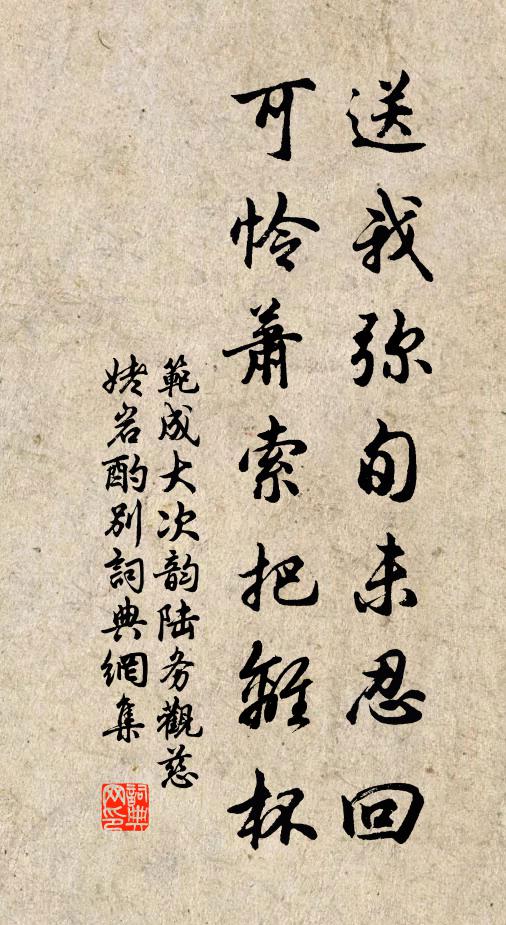 送我弥旬未忍回
可怜萧索把離杯
範成大次韵陆务觀慈
姥岩酌别詞典網集
詞典
网印